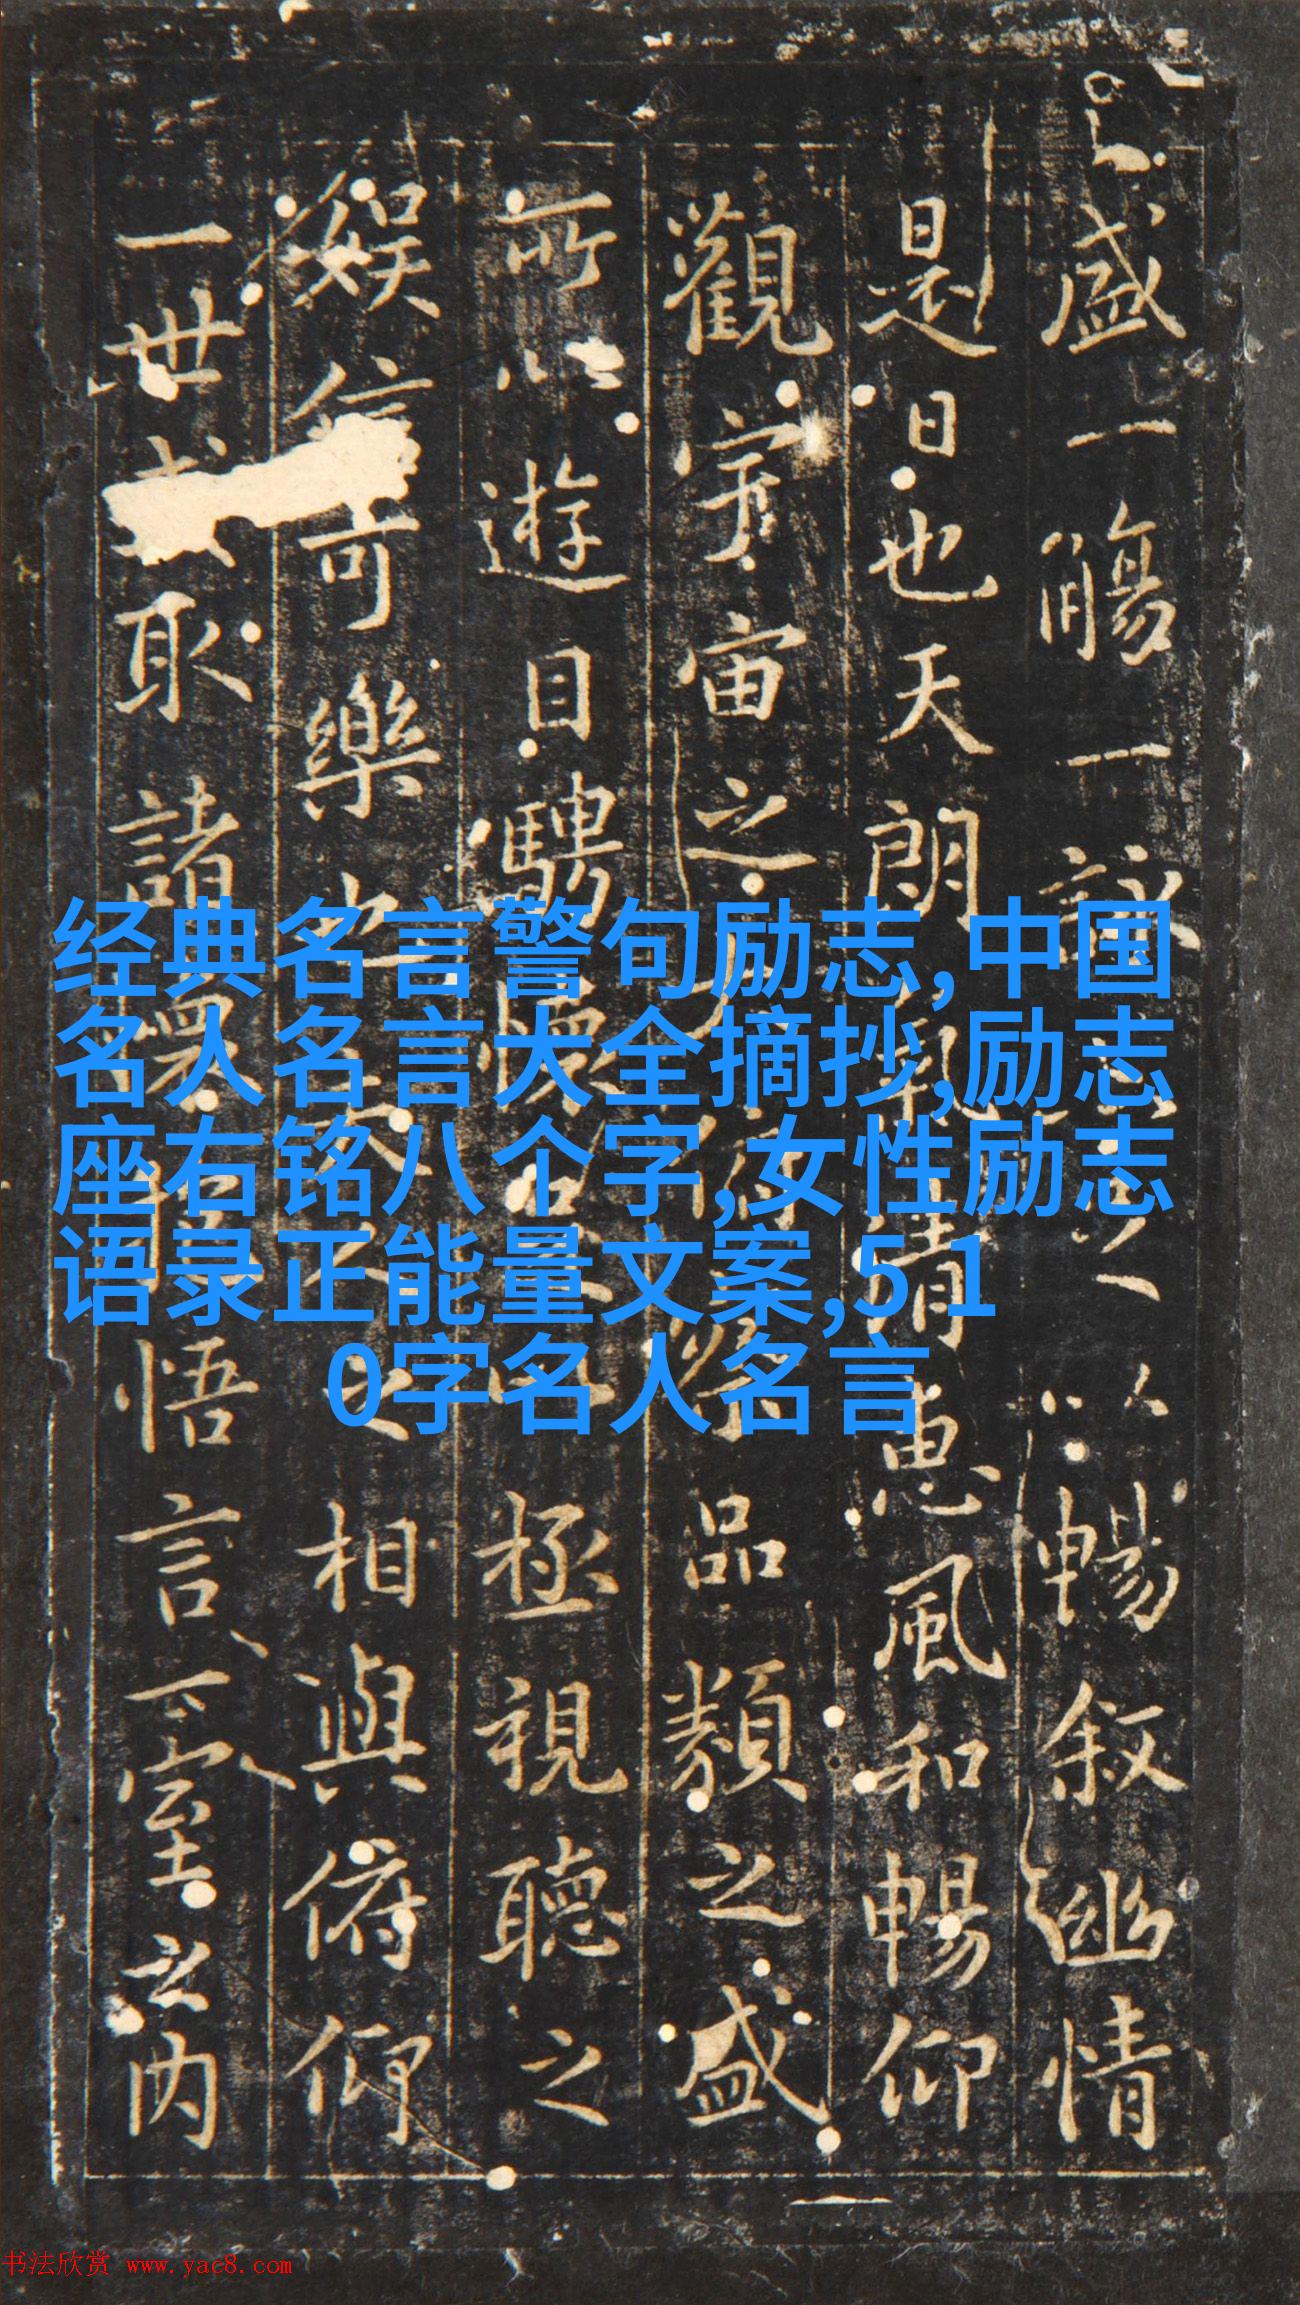 盛一觴一詠以暢叙幽情
是日也天朗氣清惠風和暢仰
觀宇宙之大俯察品類之盛
所以遊目騁懷足以極視聽之
娛信可樂也夫人之相與俯仰
一世或取諸懷抱悟言一室之内
经典名言警句励志,中国
名人名言大全摘抄,励志
座右铭八个字,女性励志
语录正能量文案,5 1
0字名人名言
书法欣赏 www.yac8.com